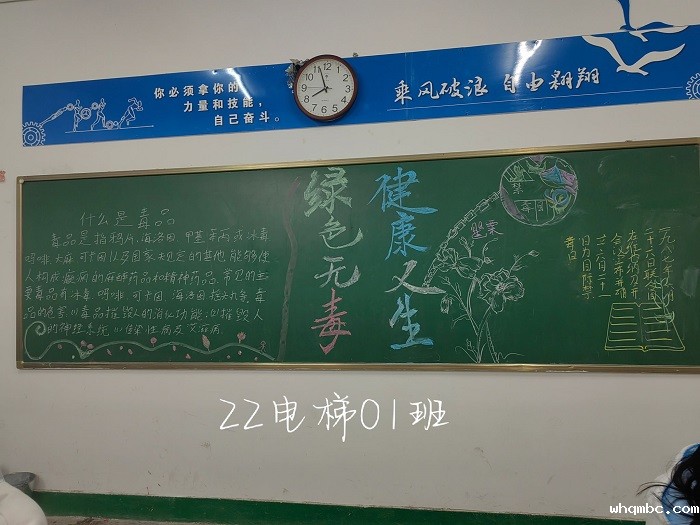 你必须拿你的
力量和技能，
自己奋斗。
乘风破浪 自由翱翔
什么是毒品
毒品是指鸦片、海洛因、甲基苯丙胺冰毒
吗啡、大麻、可卡因以及国家规定的其他能够使
人构成瘾癖的麻醉药品和精神药品。常见的主
要毒品有冰毒、吗啡、可卡因、海洛因
品的危害：(1)毒品摧毁人的消化功能；(2)摧毁人
的神经系统；(3)传染性病及艾滋病
绿色无毒
健康人生
禁毒
一九八七年六月
二十六日联合国
六月二十
日为国际禁
毒日
22电梯01班
whqmbc.com